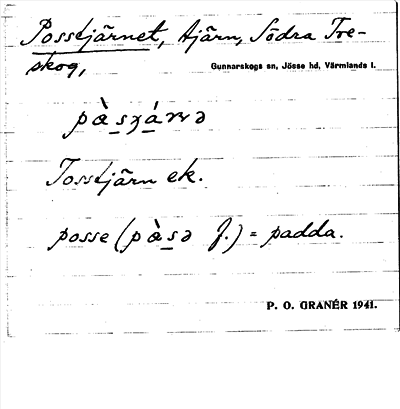 Posstjärnet, tjärn, Södra Tre-
skog, Gunnarskogs sn, Jösse hd, Värmlands l.
Tosstjärn ek.
posse (pàsə f.) = padda.
P. O. GRANÉR 1941.